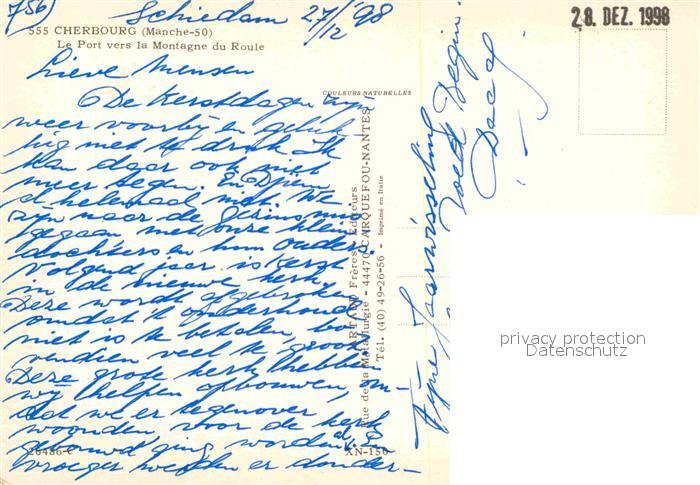 756)
Schiedam 27/12 '98
28. DEZ. 1998
555 CHERBOURG (Manche-50)
Le Port vers la Montagne du Roule
Lieve mensen
COULEURS NATURELLES
De kerstdagen zijn
weer voorbij en geluk-
kig niet te druk. Ik
kan daar ook niet
meer tegen. En
helemaal niet. We
zijn naar de
gegaan met onze klein
dochters en hun ouders.
Volgend jaar is Kerst
in de nieuwe kerk.
Deze wordt afgebroken
omdat 't onderhoud
niet is te betalen, bo-
vendien veel te groot.
Deze grote kerk hebben
wij helpen opbouwen, om-
dat we er tegenover
woonden, voor de kerk
gebouwd ging worden al. En
vroeger werden er donder-
26486-C
XN-150
Frères - Éditeurs
rue de la Métallurgie - 44470 CARQUEFOU-NANTES
Tél. (40) 49-26-56 - Imprimé en Italie
Fijne Jaarwisseling
Goed Begin
privacy protection
Datenschutz